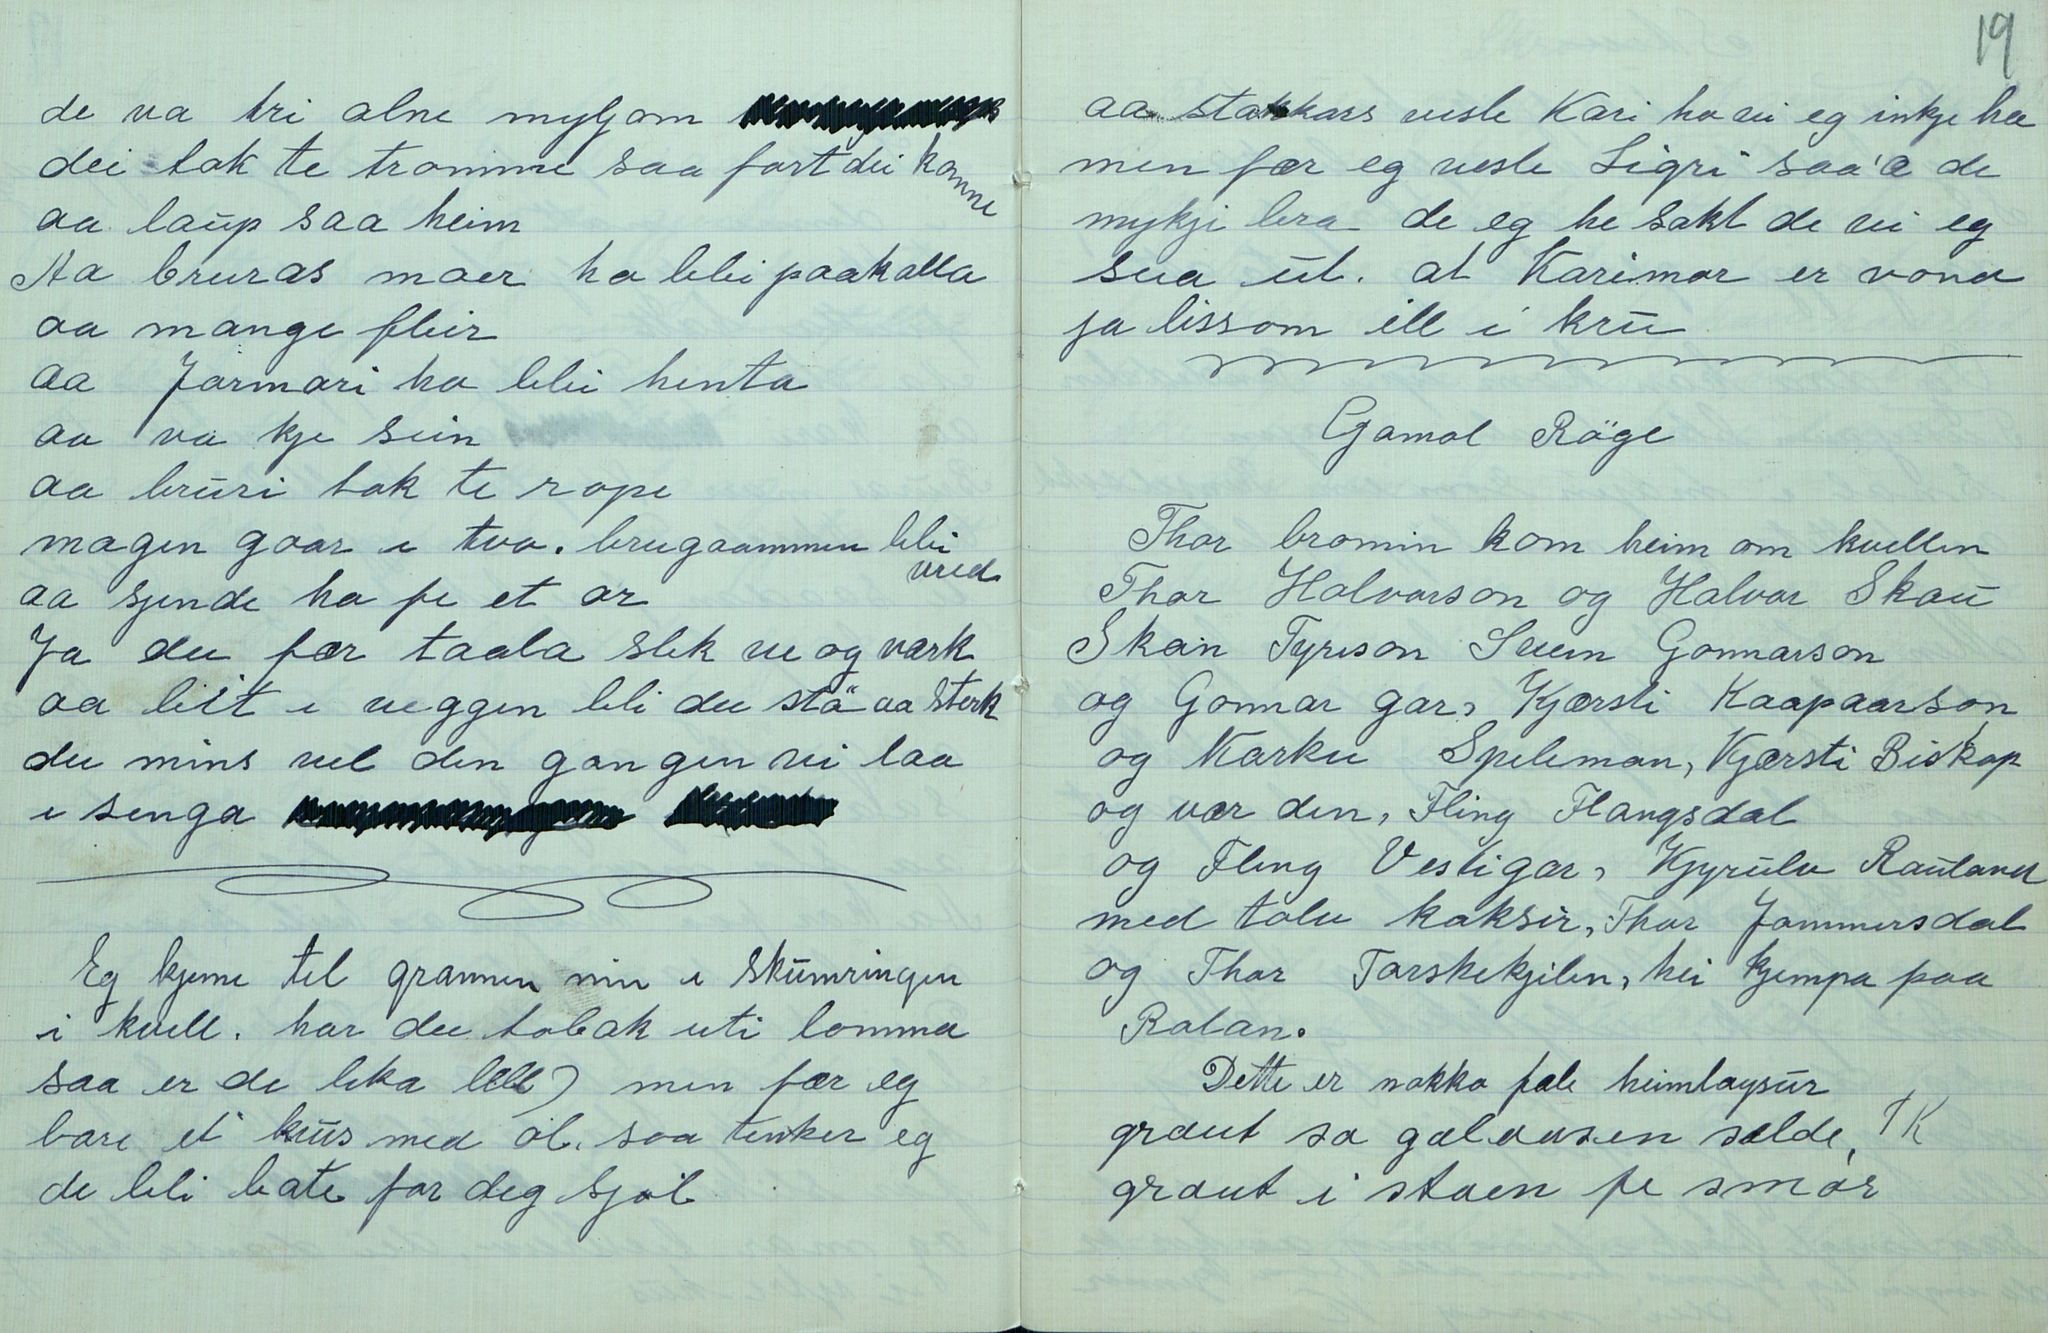 de va tri alne myljom
dei tok te tromme saa fort dei konne
aa laup saa heim
Aa bruras moer ha blei paakalla
aa mange fleir
aa Jormori ha blei henta
aa va kje sein
aa bruri tok te rope
magen gaar i tvo. brugaammen blei vreid
aa sjende ho fe et or
Ja du fær taala slik ve og værk
aa bit i veggen bli du stö aa sterk
du mins vel den gongen vi laa
i senga
Eg kjeme til grannen min i skumringen
i kvell. har du tobak uti lomma
saa er de lika lell) men fær eg
bare et krus med öl. saa tenker eg
de bli bate for deg sjøl
19
aa stakkars vesle Kari ho vi eg inkje ha
men fær eg vesle Sigri saa'æ de
mykji bra de eg he sakt de vi eg
svæ ut. at Karimor er vond
ja lissom ill i kru
Gamal Röge
Thor bromin kom heim om kvellen
Thor Halvorson og Halvor Skau
Skain Tyreson Svein Gonnarson
og Gonnar gar, Kjærsti Kaapaarson
og Korku Speleman, Kjærsti Biskop
og vær den, Fling Flangsdal
og Fleng Vestigar, Kjyrulv Rauland
med tolv koksir, Thor Jommersdal
og Thor Torskekjilen, hei kjempa paa
Rolan.
Dette er nokko fæle heimlaysur
graut sa galausen sælde, TK
graut i staen fe smör